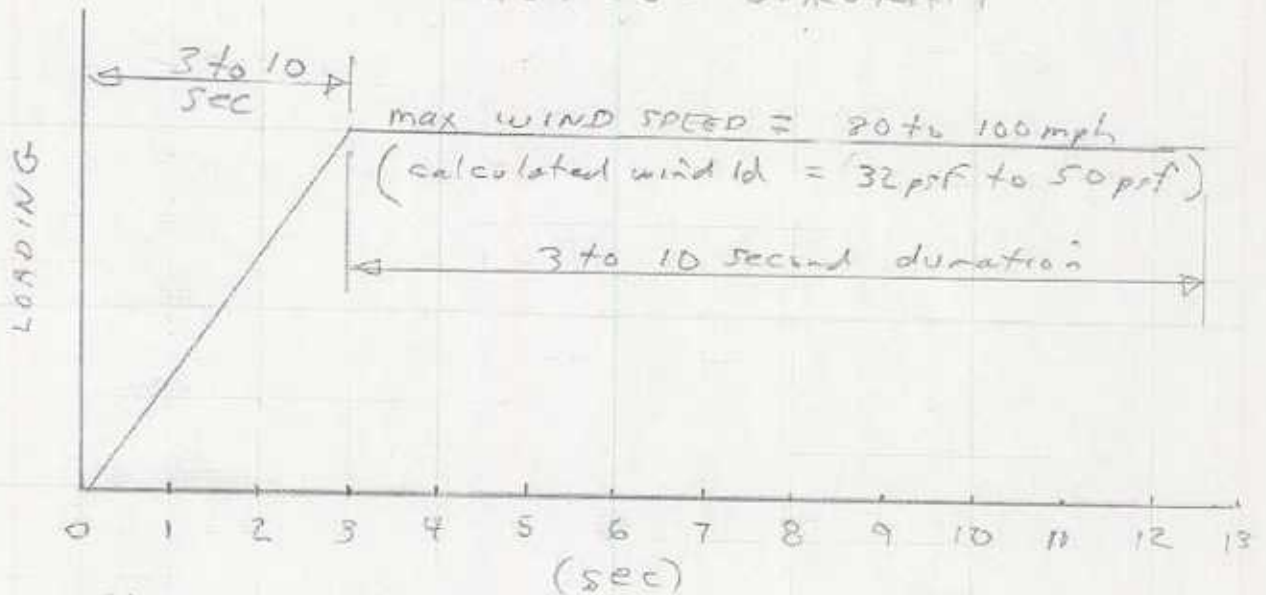 3 to 10
sec
max WIND SPEED = 80 to 100 mph
(calculated wind ld = 32 psf to 50 psf)
3 to 10 second duration
LOADING
0 1 2 3 4 5 6 7 8 9 10 11 12 13
(sec)